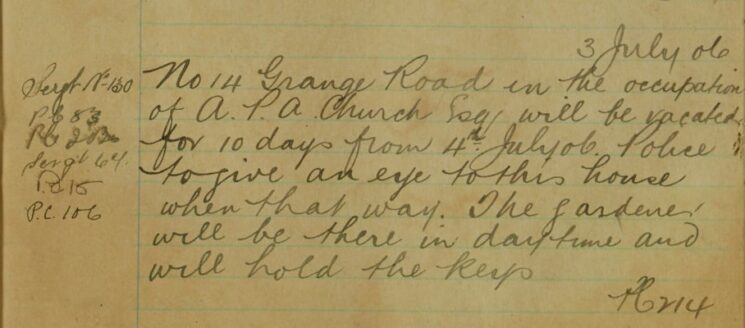 3 July 06
Sergt No 130
P.C 83
Sergt 64.
P.C 15
P.C. 106
No 14 Grange Road in the occupation
of A. P. A Church Esq will be vacated
for 10 days from 4th July 06. Police
to give an eye to this house
when that way. The gardener
will be there in daytime and
will hold the keys
214